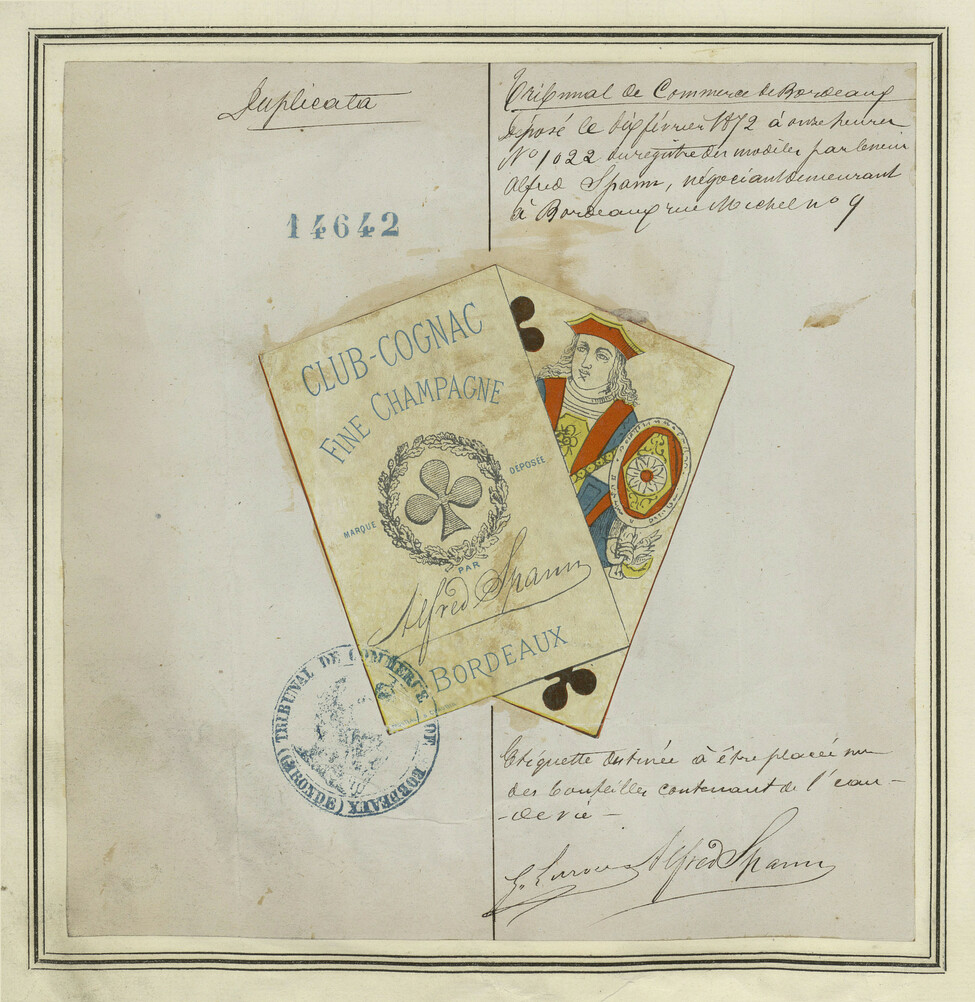 Duplicata
14642
Tribunal de Commerce de Bordeaux
déposé le dix février 1872 à onze heures
No 1022 du registre des modèles par le sieur
Alfred Spann, négociant demeurant
à Bordeaux rue Michel no 9
CLUB-COGNAC
FINE CHAMPAGNE
MARQUE DÉPOSÉE
PAR
Alfred Spann
BORDEAUX
TRIBUNAL DE COMMERCE DE BORDEAUX (GIRONDE)
Etiquette destinée à être placée sur
des bouteilles contenant de l'eau-
-de vie -
Alfred Spann